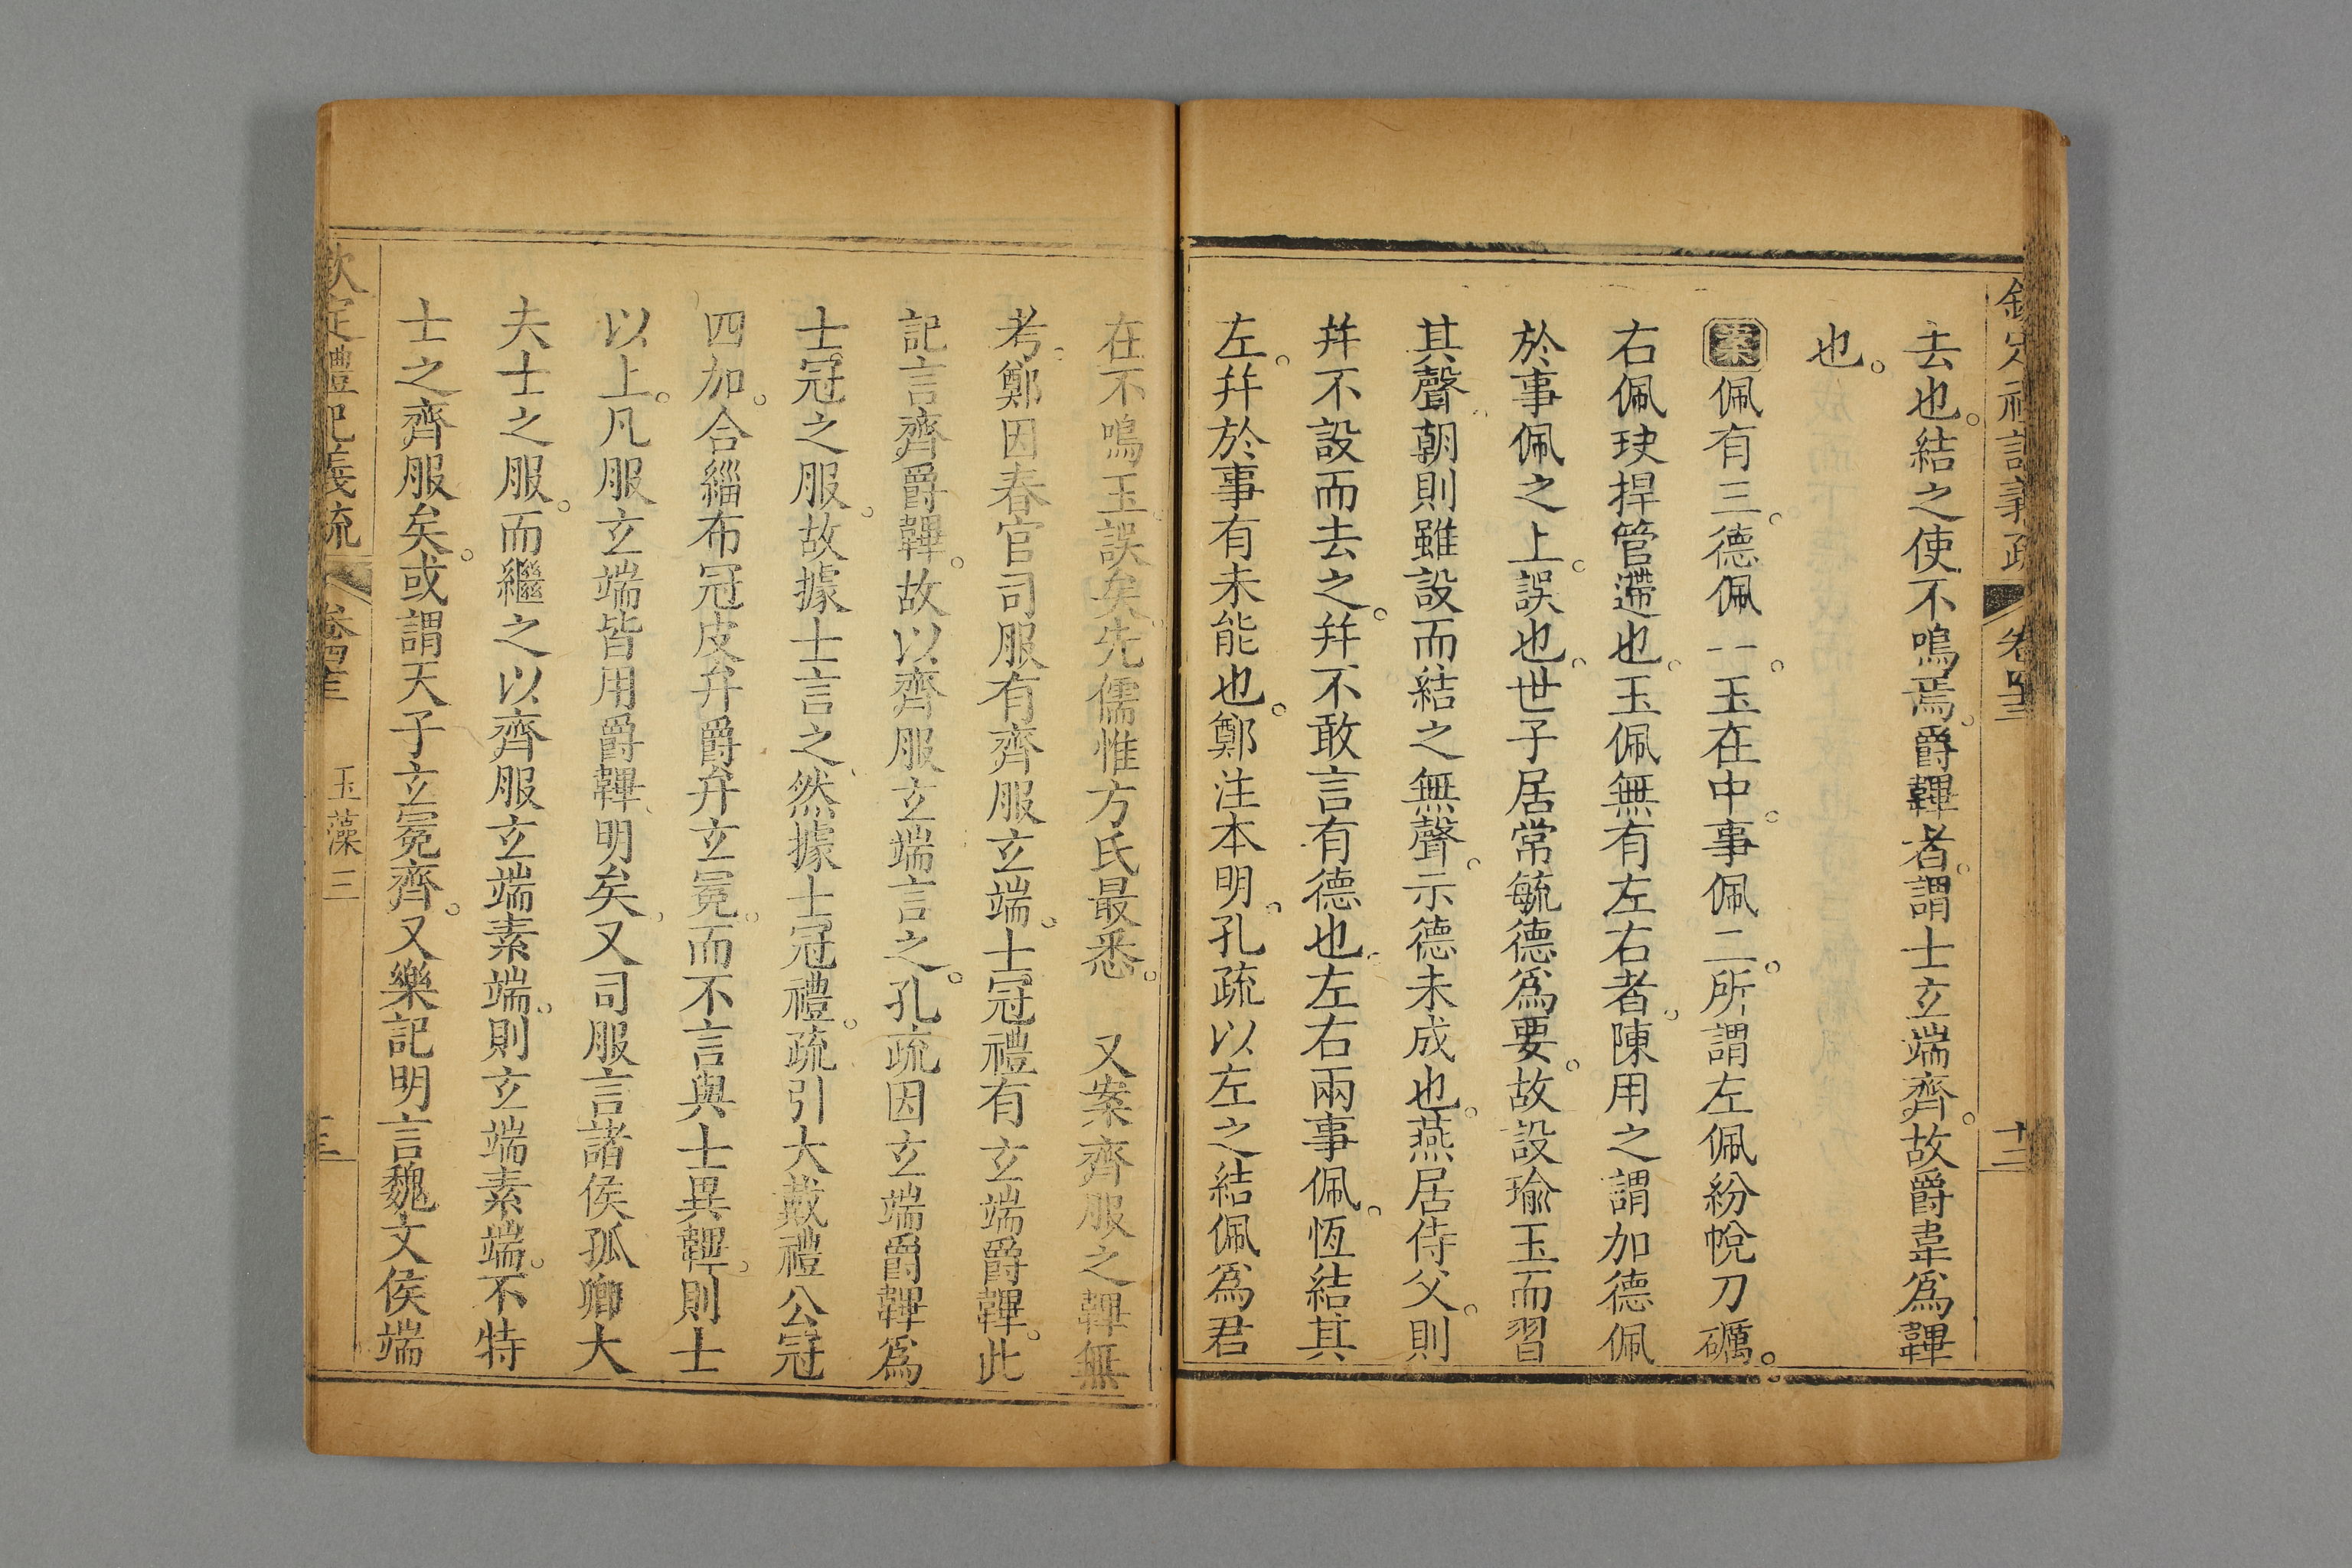 欽定禮記義疏 卷四十三 十二
去也。結之使不鳴焉。爵韠者。謂士玄端齊。故爵韋爲韠
也。
案佩有三。德佩一。玉在中。事佩二。所謂左佩紛帨刀礪。
右佩玦捍管遰也。玉佩無有左右者。陳用之謂加德佩
於事佩之上。誤也。世子居常毓德爲要。故設瑜玉而習
其聲。朝則雖設而結之無聲。示德未成也。燕居侍父。則
幷不設而去之。幷不敢言有德也。左右兩事佩。恆結其
左。幷於事有未能也。鄭注本明。孔疏以左之結佩爲君
在不鳴玉。誤矣。先儒惟方氏最悉。 又案齊服之韠無
考。鄭因春官司服有齊服玄端。士冠禮有玄端爵韠。此
記言齊爵韠。故以齊服玄端言之。孔疏因玄端爵韠爲
士冠之服。故據士言之。然據士冠禮。疏引大戴禮公冠
四加。合緇布冠皮弁爵弁玄冕。而不言與士異韠。則士
以上。凡服玄端皆用爵韠。明矣。又司服言諸侯孤卿大
夫士之服。而繼之以齊服玄端素端。則玄端素端。不特
士之齊服矣。或謂天子玄冕齊。又樂記明言魏文侯端
欽定禮記義疏 卷四十三 玉藻三